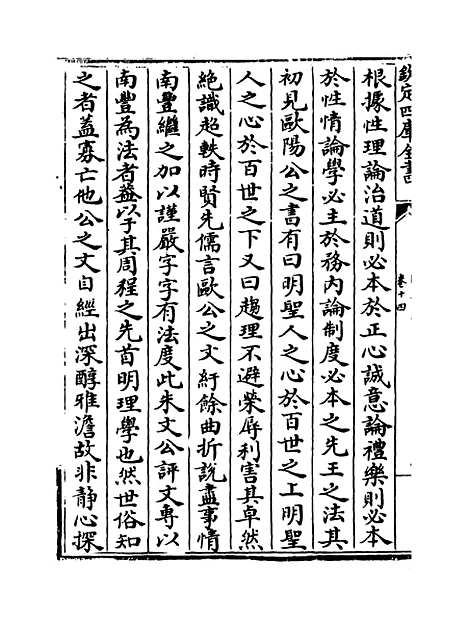 欽定四庫全書
卷十四
根據性理論治道則必本於正心誠意論禮樂則必本
於性情論學必主於務內論制度必本之先王之法其
初見歐陽公之書有曰明聖人之心於百世之上明聖
人之心於百世之下又曰趨理不避榮辱利害其卓然
絶識超軼時賢先儒言歐公之文紆餘曲折說盡事情
南豐繼之加以謹嚴字字有法度此朱文公評文專以
南豐為法者蓋以于其周程之先首明理學也然世俗知
之者蓋寡亡他公之文自經出深醇雅澹故非静心探